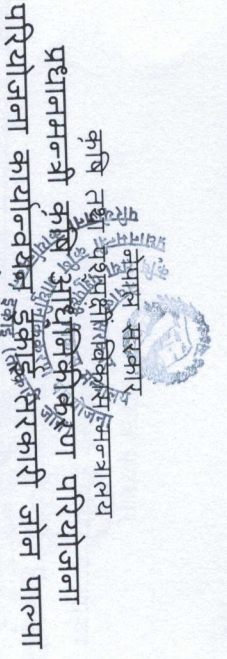 नेपाल सरकार
कृषि तथा पशुपन्छी विकास मन्त्रालय
प्रधानमन्त्री कृषि आधुनिकीकरण परियोजना
परियोजना कार्यान्वयन इकाई तरकारी जोन पाल्पा